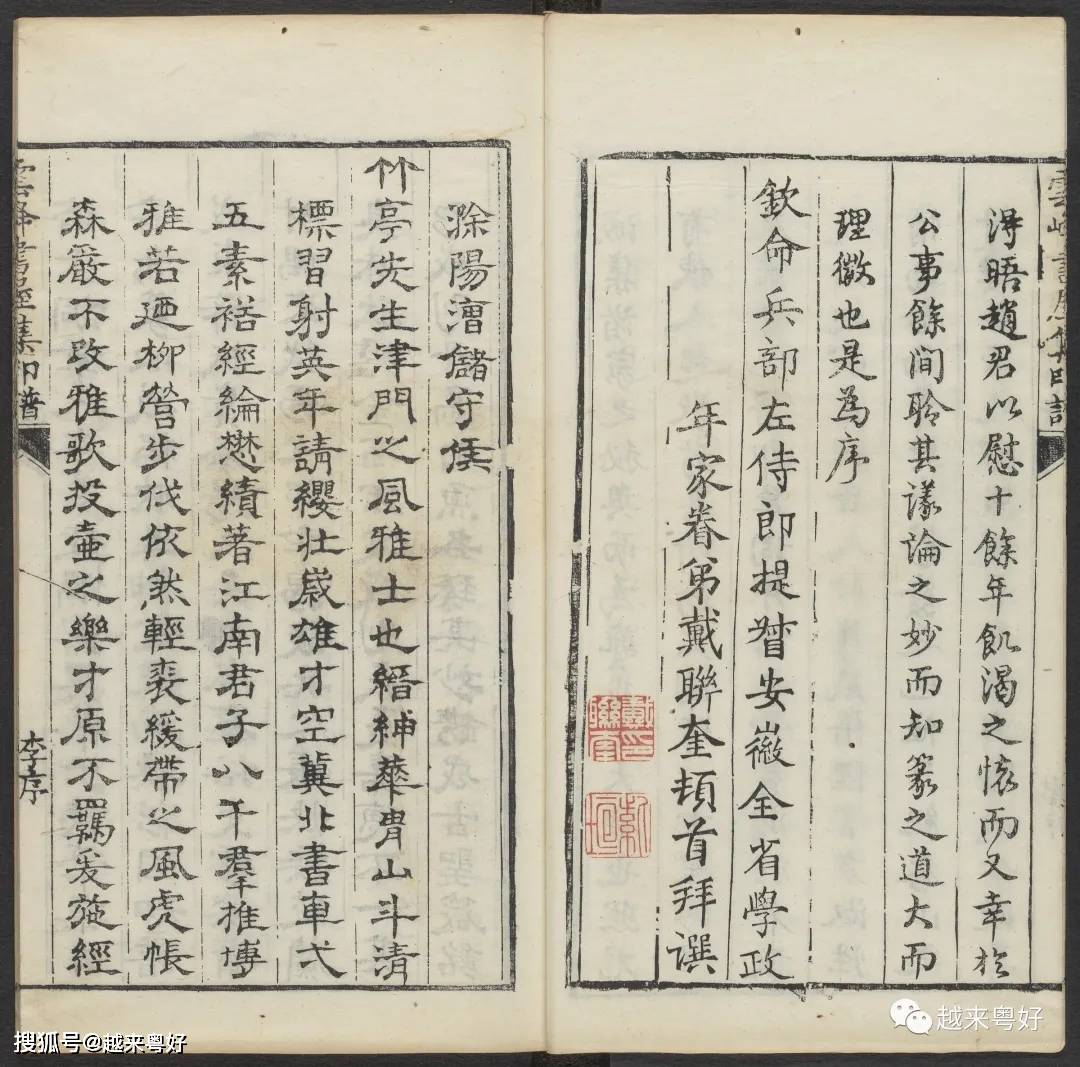 雲峰書屋集印譜
得晤趙君以慰十餘年飢渴之懷而又幸於
公事餘間聆其議論之妙而知篆之道大而
理微也是為序
欽命兵部左侍郎提督安徽全省學政
年家眷弟戴聯奎頓首拜譔
戴印聯奎
紫垣
滁陽漕儲守侯
竹亭先生津門之風雅士也縉紳華胄山斗清
標習射英年請纓壯歲雄才空冀北書車弍
五素裕經綸懋績著江南君子八千羣推博
雅若迺柳營步伐依然輕裘緩帶之風虎帳
森嚴不改雅歌投壺之樂才原不羈爰施經
雲峰書屋集印譜
李序
搜狐号@越来粤好
越来粤好